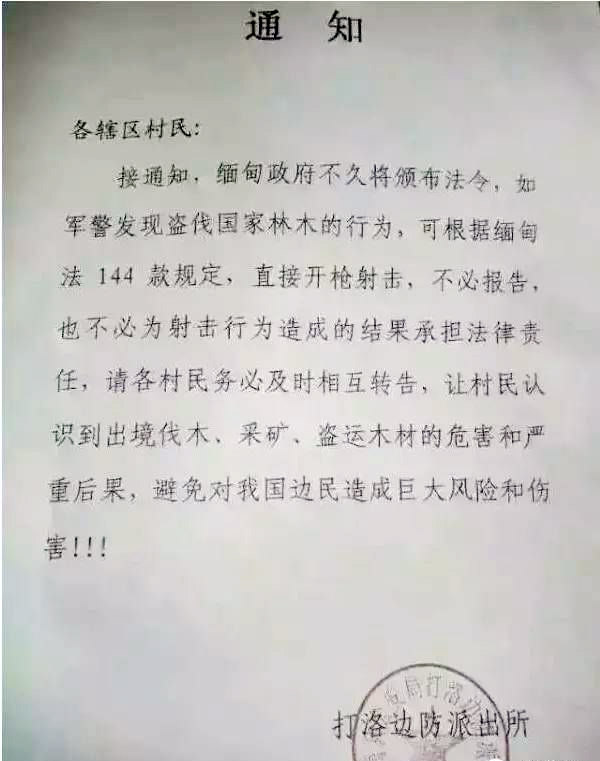 通 知
各辖区村民:
接通知,缅甸政府不久将颁布法令,如
军警发现盗伐国家林木的行为,可根据缅甸
法 144 款规定,直接开枪射击,不必报告,
也不必为射击行为造成的结果承担法律责
任,请各村民务必及时相互转告,让村民认
识到出境伐木、采矿、盗运木材的危害和严
重后果,避免对我国边民造成巨大风险和伤
害!!!
局打洛边防
打洛边防派出所